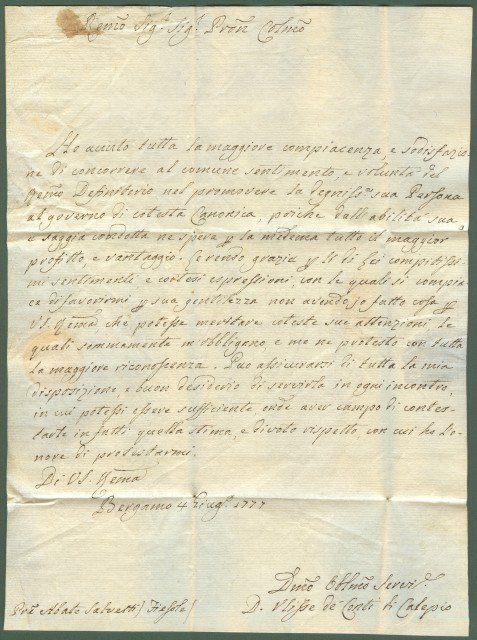 Remõ Sig.r Sig.r Proñ Colmõ
Ho avuto tutta la maggiore compiacenza, e sodisfazio
ne di concorrere al comune sentimento, e volontà del
Remõ Definitorio nel promovere la degniss.ma sua Persona
al governo di cotesta Canonica, poiche dall'abilità sua
e saggia condotta ne spera p la medema tutto il maggior
profitto e vantaggio. Le renso grazie p li di Lei compitissi
mi sentimenti e cortesi espressioni, con le quali si compia
ce di favorirmi p sua gentilezza non avendo io fatto cosa p
V.S. Rema che potesse meritare coteste sue attenzioni, le
quali sommamente m'obbligono e me ne protesto con tutta
la maggiore riconoscenza. Può assicurarsi di tutta la mia
disposizione, e buon desiderio di servirla in ogni incontro,
in cui potessi essere sufficiente onde aver campo di contes-
tarle in fatti quella stima, e divoto rispetto con cui ho l'o-
nore di protestarmi.
Di V.S. Rema
Bergamo 4 Giug.o 1777
Dmõ Obblmõ Servi.r
Proñ Abate Salvetti / Fiesole / D. Ulisse de Conti di Calepio